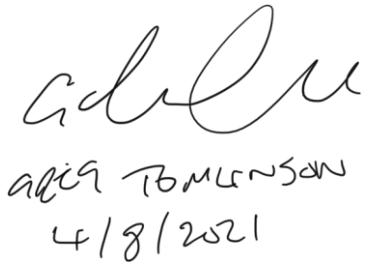 GREG TOMLINSON
4/8/2021